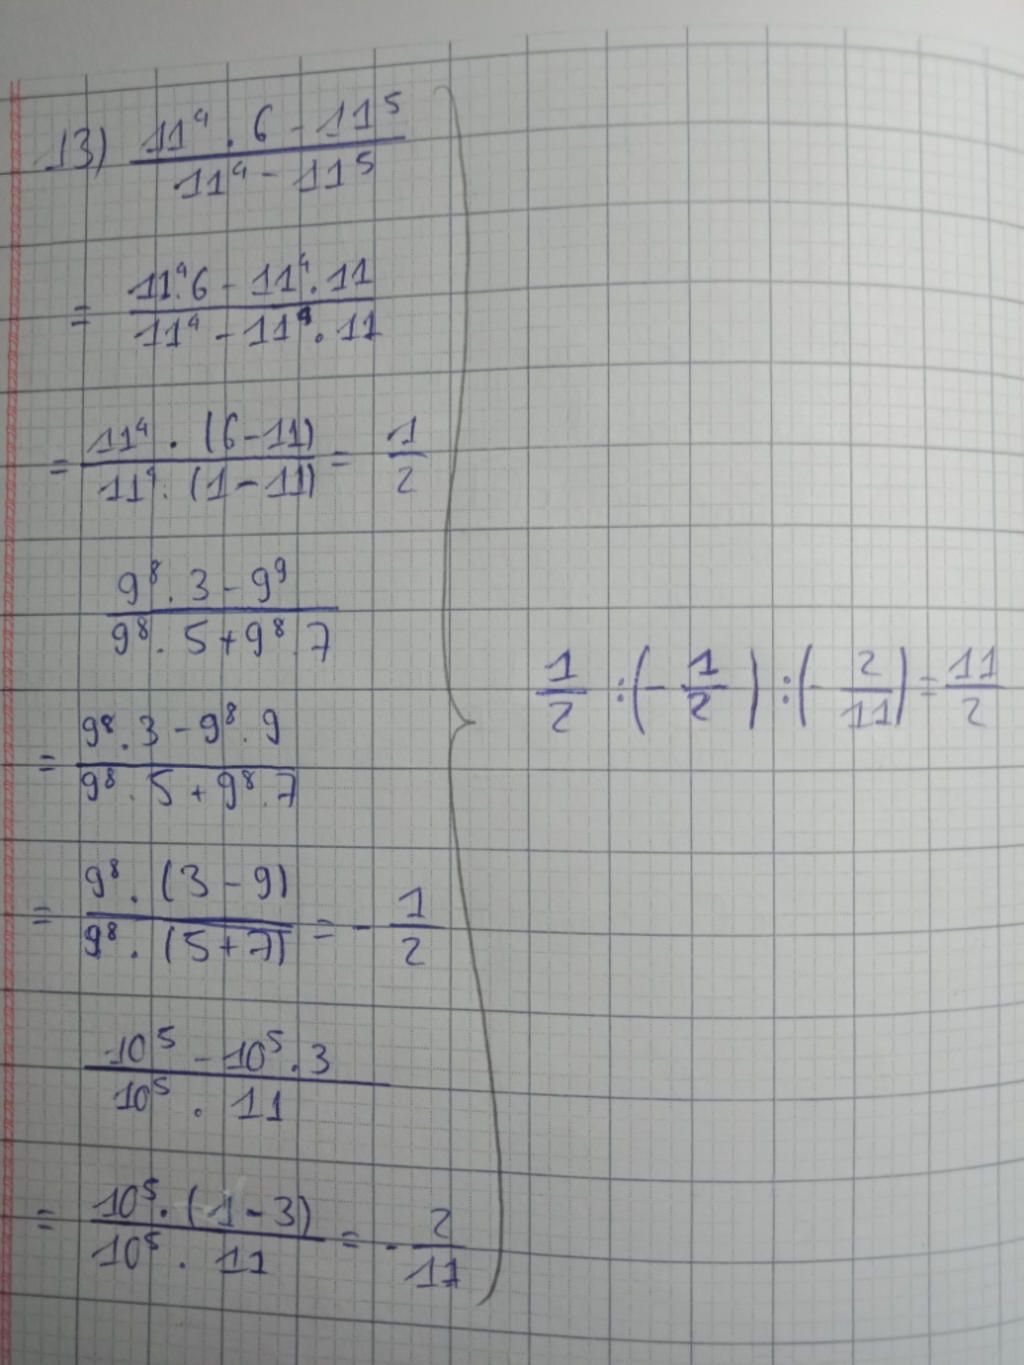 13) \frac{11⁴ . 6 - 11⁵}{11⁴ - 11⁵}
= \frac{11⁴.6 - 11⁴.11}{11⁴ - 11⁴.11}
= \frac{11⁴ . (6-11)}{11⁴. (1-11)} = \frac{1}{2}
\frac{9⁸.3-9⁹}{9⁸.5+9⁸.7}
\frac{1}{2} :(-\frac{1}{2}) :(-\frac{2}{11}) = \frac{11}{2}
= \frac{9⁸.3-9⁸.9}{9⁸.5+9⁸.7}
= \frac{9⁸.(3-9)}{9⁸.(5+7)} = -\frac{1}{2}
\frac{10⁵-10⁵.3}{10⁵.11}
= \frac{10⁵.(1-3)}{10⁵.11} = -\frac{2}{11}